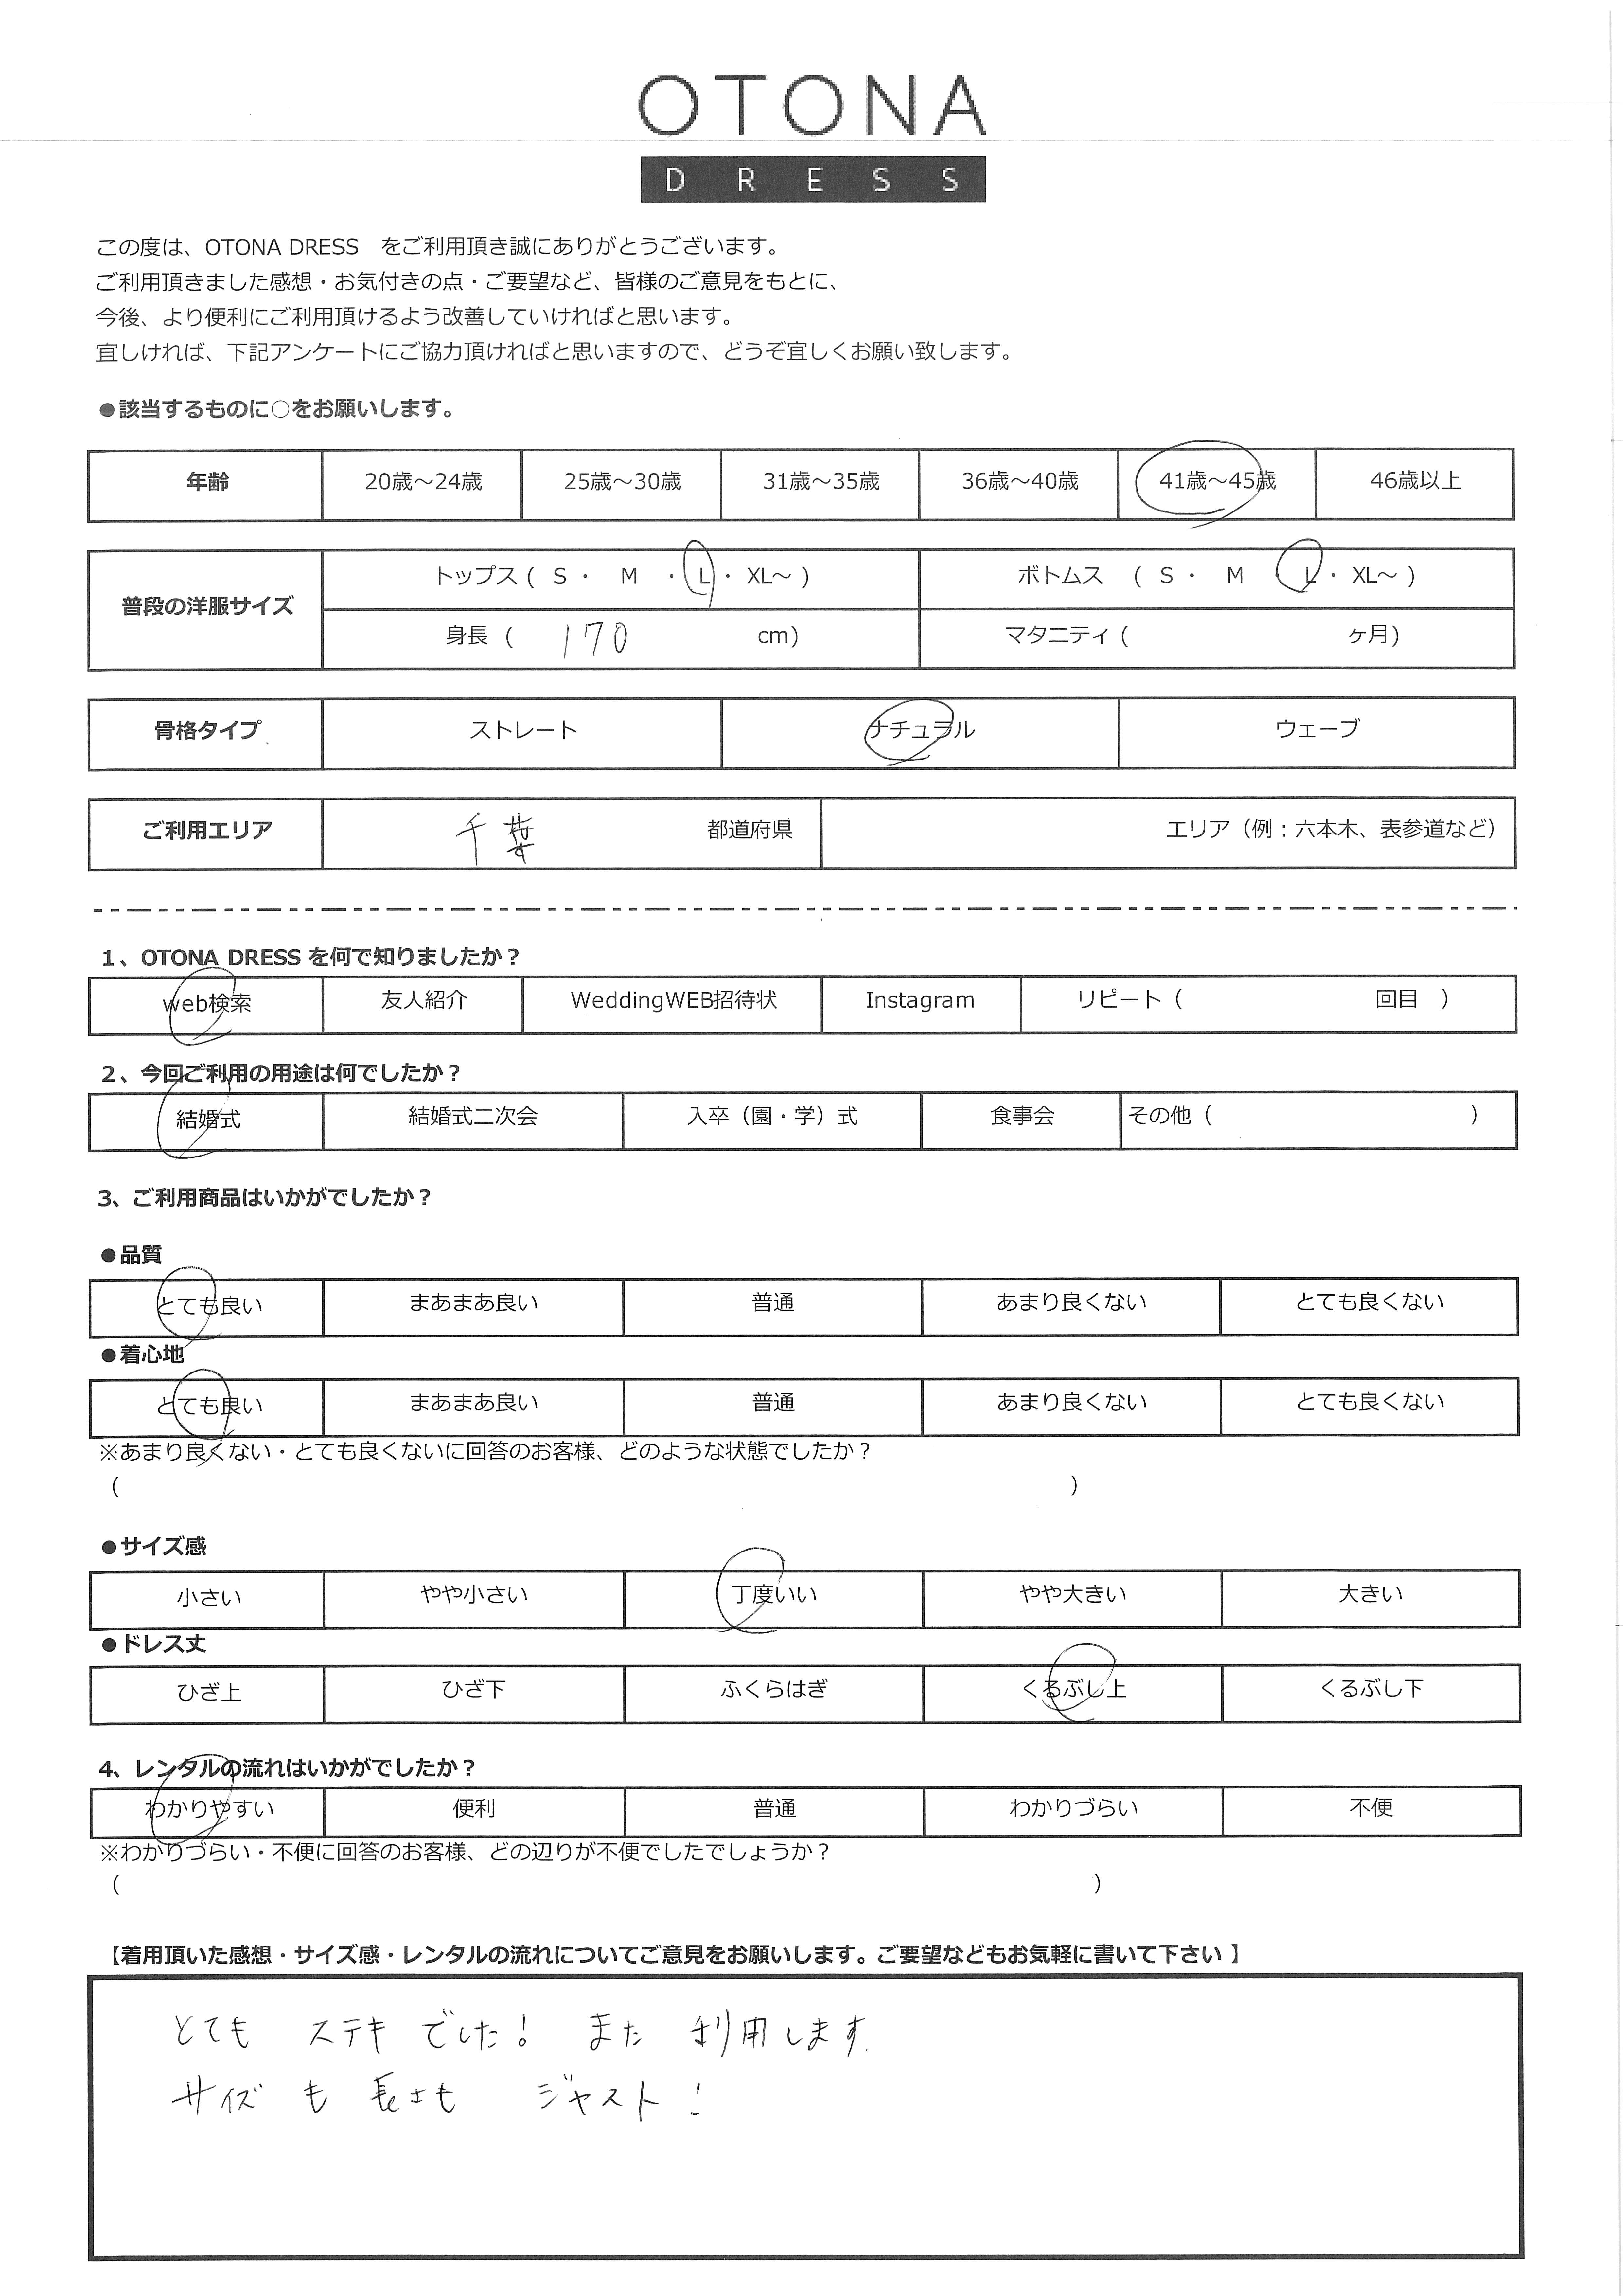 OTONA
DRESS
この度は、OTONA DRESS　をご利用頂き誠にありがとうございます。
ご利用頂きました感想・お気付きの点・ご要望など、皆様のご意見をもとに、
今後、より便利にご利用頂けるよう改善していければと思います。
宜しければ、下記アンケートにご協力頂ければと思いますので、どうぞ宜しくお願い致します。
●該当するものに○をお願いします。
年齢 20歳～24歳 25歳～30歳 31歳～35歳 36歳～40歳 41歳～45歳 46歳以上
普段の洋服サイズ トップス ( S ・ M ・ L ・ XL～ ) ボトムス ( S ・ M ・ L ・ XL～ )
身長 ( 170 cm) マタニティ ( ヶ月)
骨格タイプ ストレート ナチュラル ウェーブ
ご利用エリア 千葉 都道府県 エリア（例：六本木、表参道など）
1、OTONA DRESS を何で知りましたか？
web検索 友人紹介 WeddingWEB招待状 Instagram リピート（ 回目 ）
2、今回ご利用の用途は何でしたか？
結婚式 結婚式二次会 入卒（園・学）式 食事会 その他（ ）
3、ご利用商品はいかがでしたか？
●品質
とても良い まあまあ良い 普通 あまり良くない とても良くない
●着心地
とても良い まあまあ良い 普通 あまり良くない とても良くない
※あまり良くない・とても良くないに回答のお客様、どのような状態でしたか？
（ ）
●サイズ感
小さい やや小さい 丁度いい やや大きい 大きい
●ドレス丈
ひざ上 ひざ下 ふくらはぎ くるぶし上 くるぶし下
4、レンタルの流れはいかがでしたか？
わかりやすい 便利 普通 わかりづらい 不便
※わかりづらい・不便に回答のお客様、どの辺りが不便でしたでしょうか？
（ ）
【着用頂いた感想・サイズ感・レンタルの流れについてご意見をお願いします。ご要望などもお気軽に書いて下さい 】
とても ステキ でした！ また 利用します
サイズ も 長さも ジャスト！